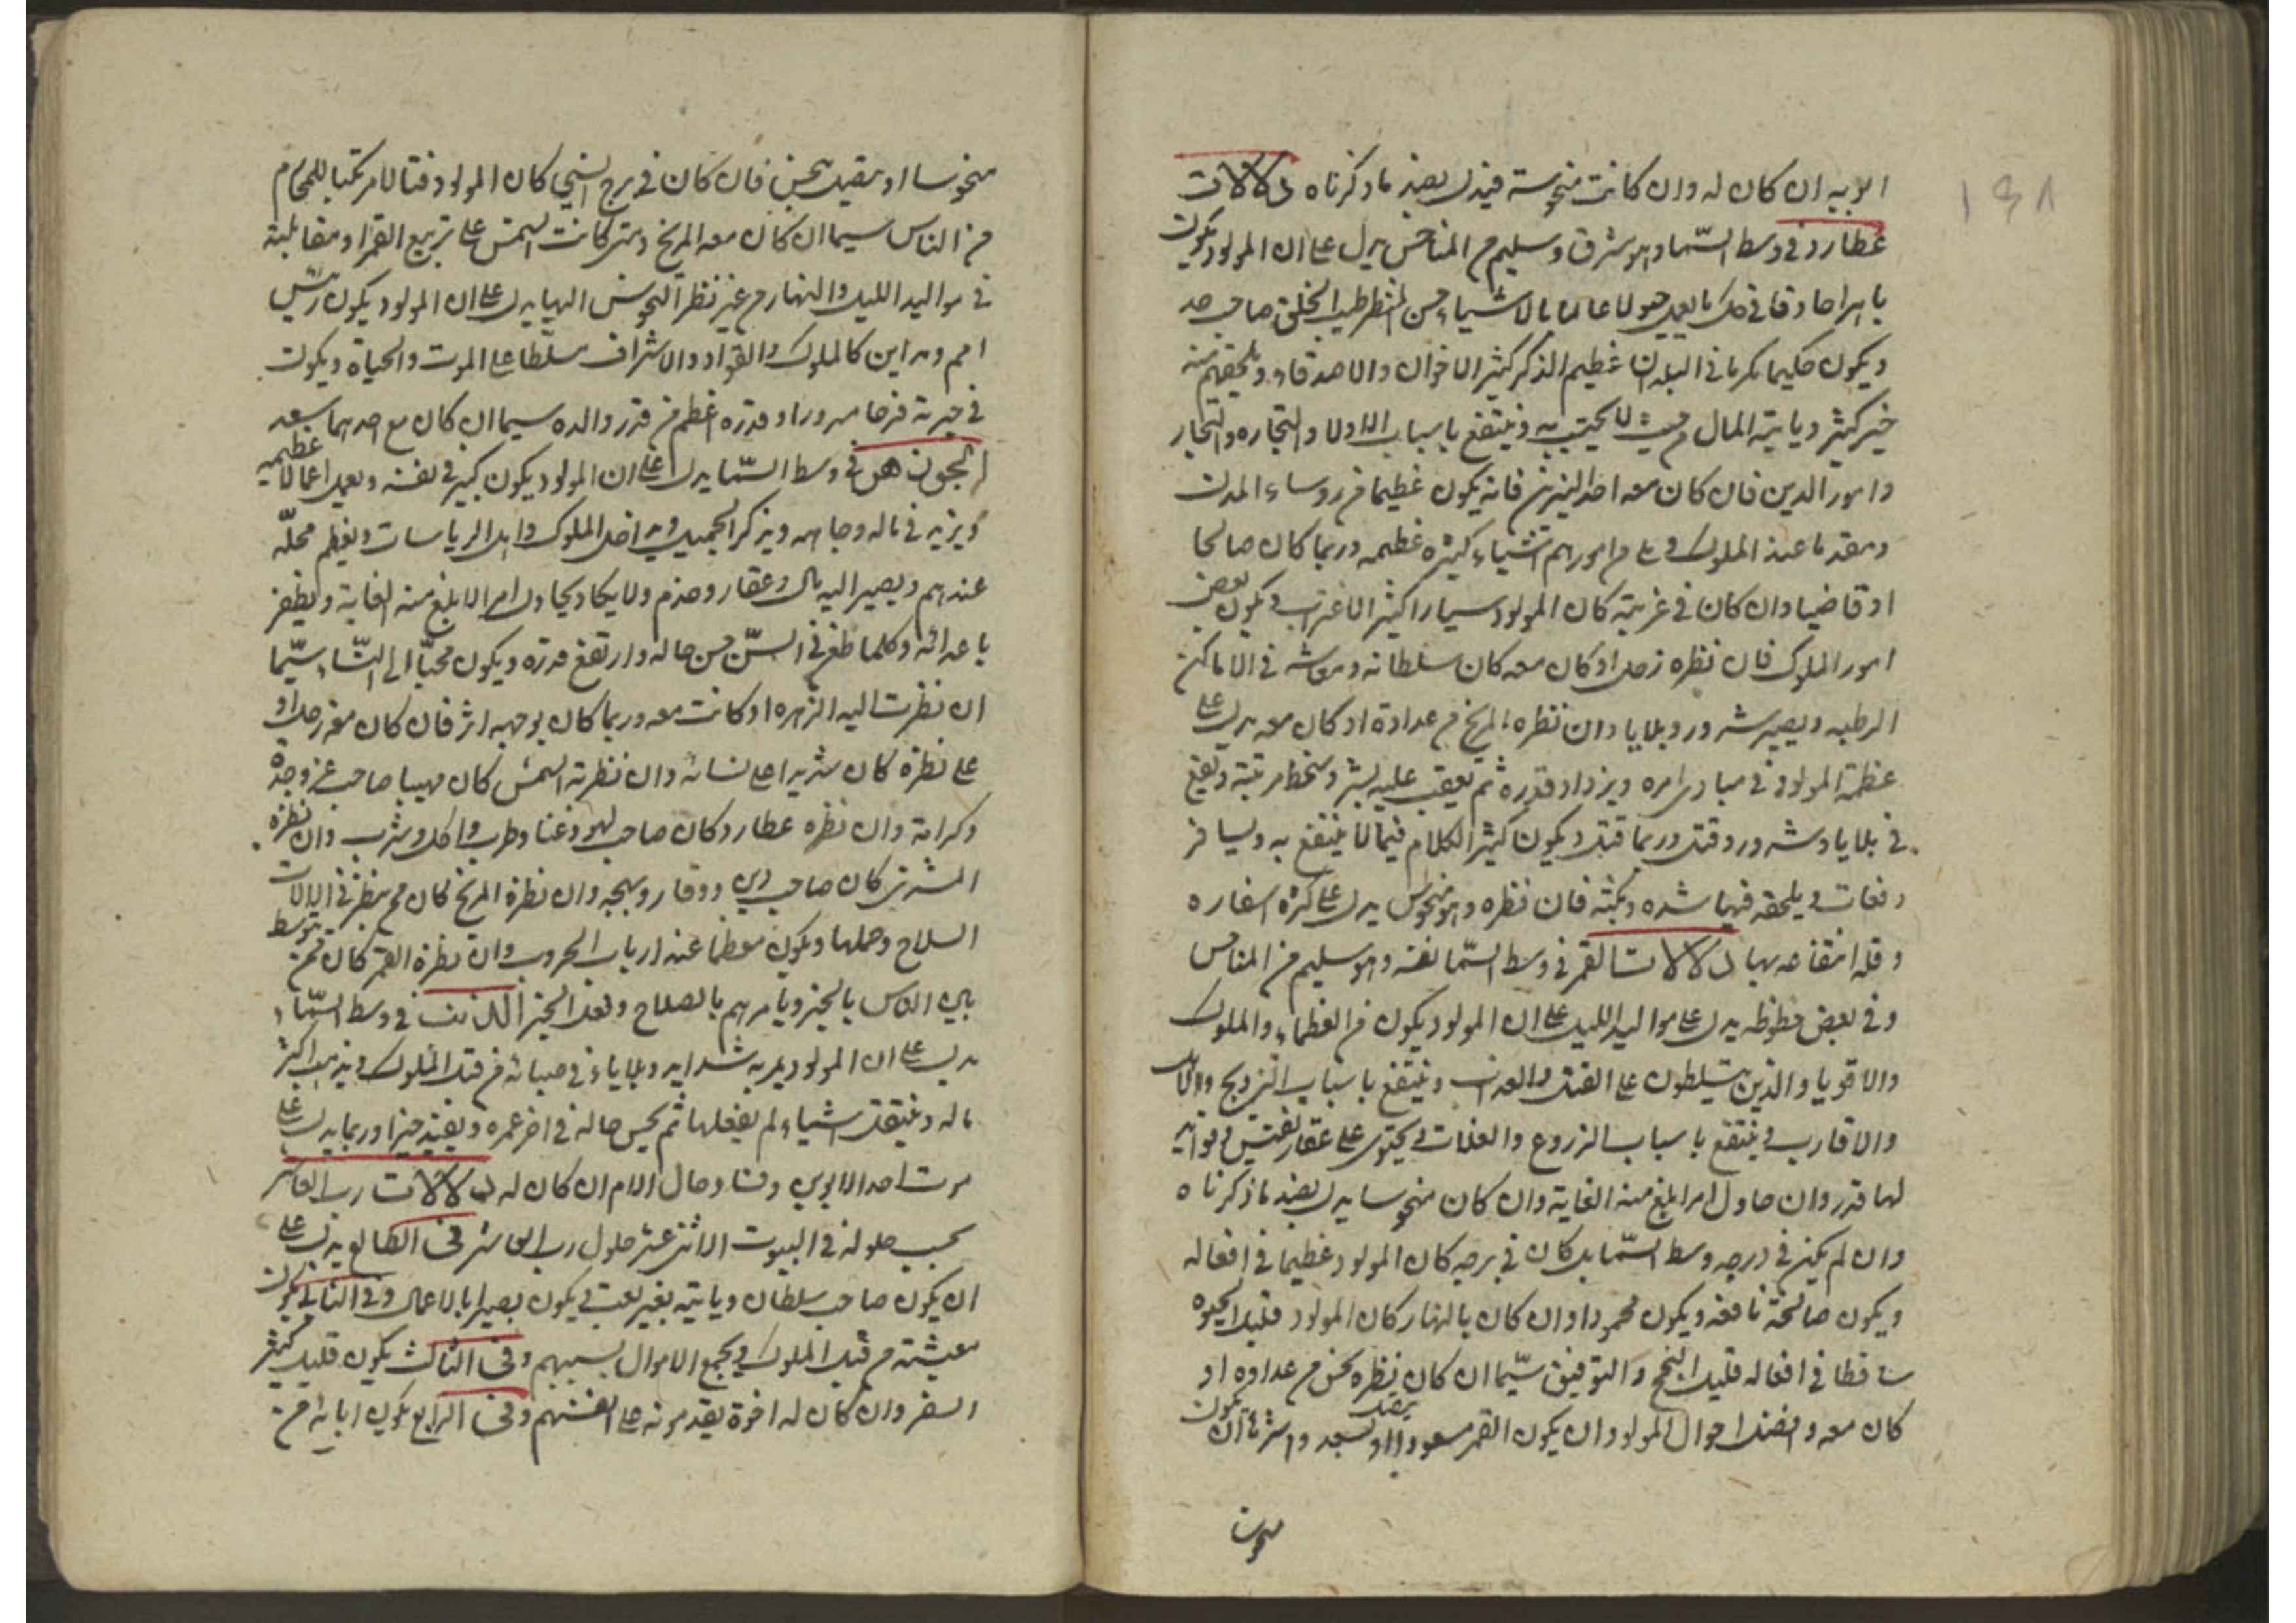 ١٩٨
ابويه ان كان له وان كانت منحوسة فيدل بضد ما ذكرناه دلالات
عطارد في وسط السّما وهو مشرق وسليم من المناحس يدل على ان المولود يكون
باهرا حاذقا في كل ما يعمل عالما بالاشياء حسن المنظر طيب الخلق صاحب
ويكون حكيما مكرما في البلدان عظيم الذكر كثير الاخوان والاصدقاء ويلحقهم منه
خير كثير وياتيه المال من حيث لا يحتسب وينتفع باسباب الاولاد والتجاره والتجار
وامور الدين فان كان معه احد النيرين فانه يكون عظيما من روساء المدن
ومقدما عند الملوك و من امورهم اشياء كثيره عظيمه وربما كان صالحا
او قاضيا وان كان في غربته كان المولود كثير الاغتراب ويكون بعض
امور الملوك فان نظره زحل او كان معه كان سلطانه ومعاشه في الاماكن
الرطبه ويصيبه شرور وبلايا وان نظره المريخ من عداوة او كان معه يدل على
عظمة المولود في مبادى امره ويزداد قدره ثم ينقلب عليه بشر وتنحط مرتبته ويقع
في بلايا وشرور وقتل وربما قتل ويكون كثير الكلام فيما لا ينتفع به ويسافر
دفعات ويلحقه فيها شده ونكبته فان نظره وهو منحوس يدل على كثرة اسفاره
وقلة انتفاعه بها دلالات القمر في وسط السّما نفسه وهو سليم من المناحس
وفي بعض حظوظه يدل على مواليد الليل على ان المولود يكون من العظماء والملوك
والاقويا والذين يتسلطون على القتل والعذاب وينتفع باسباب التزويج والاناث
والاقارب وينتفع باسباب الزروع والغلات ويحتوى على عقار نفيس وفوائد
لها قدر وان حاول امرا بلغ منه الغاية وان كان منحوسا يدل بضد ما ذكرناه
وان لم يكن في درجه وسط السّما بل كان في برجه كان المولود عظيما في افعاله
ويكون صالحة نافعه ويكون محمودا وان كان بالنهار كان المولود قليل
ساقطا في افعاله قليل النجح والتوفيق سيّما ان كان ينظره نحس من عداوه او
كان معه وافضل احوال المولود ان يكون القمر مسعودا او يتصل بسعد واشر ان يكون
منحوسا
منحوسا او يتصل بنحس فان كان في برج النيّن كان المولود قتالا مرتكبا للمحارم
من الناس سيما ان كان معه المريخ ومتى كانت الشمس على تربيع القمر او مقابلته
في مواليد الليل والنهار من غير نظر النحوس اليها يدل على ان المولود يكون رئيس
امم ومداين كالملوك والقواد والاشراف مسلطا على الموت والحياة ويكون
في حيوته فرحا مسرورا وقدره اعظم من قدر والده سيما ان كان مع احدهما سعد
الجوزهر في وسط السّما يدل على ان المولود يكون كبير في نفسه ويعمل اعمالا عظيمه
ويزيد في ماله وجاهه ويذكر الجميل ويداخل الملوك واهل الرياسات ويعظم محلّه
عندهم ويصير اليه مال وعقار وخدم ولا يكاد يحاول امر الا بلغ منه الغاية ويظفر
باعدائه وكلما طعن في السّن حسن حاله وارتفع قدره ويكون محبّا الى النّساء سيّما
ان نظرت اليه الزهره او كانت معه وربما كان بوجهه اثر فان كان معه زحل او
على نظره كان شريرا على نسائه وان نظرته الشمس كان مهيبا صاحب عز وجده
وكرامة وان نظره عطارد كان صاحب لهو وغنا وطرب واكل وشرب وان نظره
المشترى كان صاحب دين ووقار وبهجه وان نظره المريخ كان ممن ينظر في الالات
السلاح وحملها ويكون معظما عند ارباب الحروب وان نظره القمر كان ممن يتوسط
بين الناس بالخير ويأمرهم بالصلاح وفعل الخير الذنب في وسط السّماء
يدل على ان المولود يمر به شدايد وبلاياء في صبائه من قبل الملوك ويذهب اكثر
ماله وينتقل اشياء لم يفعلها ثم يحسن حاله في اخر عمره ويفيد خيرا وربما يدل على
موت احد الابوين وفساد حال الام ان كان له دلالات رب العاشر
بحسب حلوله في البيوت الاثنى عشر حلول رب العاشر في الطالع يدل على
ان يكون صاحب سلطان وياتيه بغير تعب ويكون بصيرا بالاعمال وفي الثاني يكون
معيشته من قبل الملوك ويجمع الاموال بسببهم وفي الثالث يكون قليل كثير
السفر وان كان له اخوة يقدمونه على انفسهم وفي الرابع يكون ابائه من